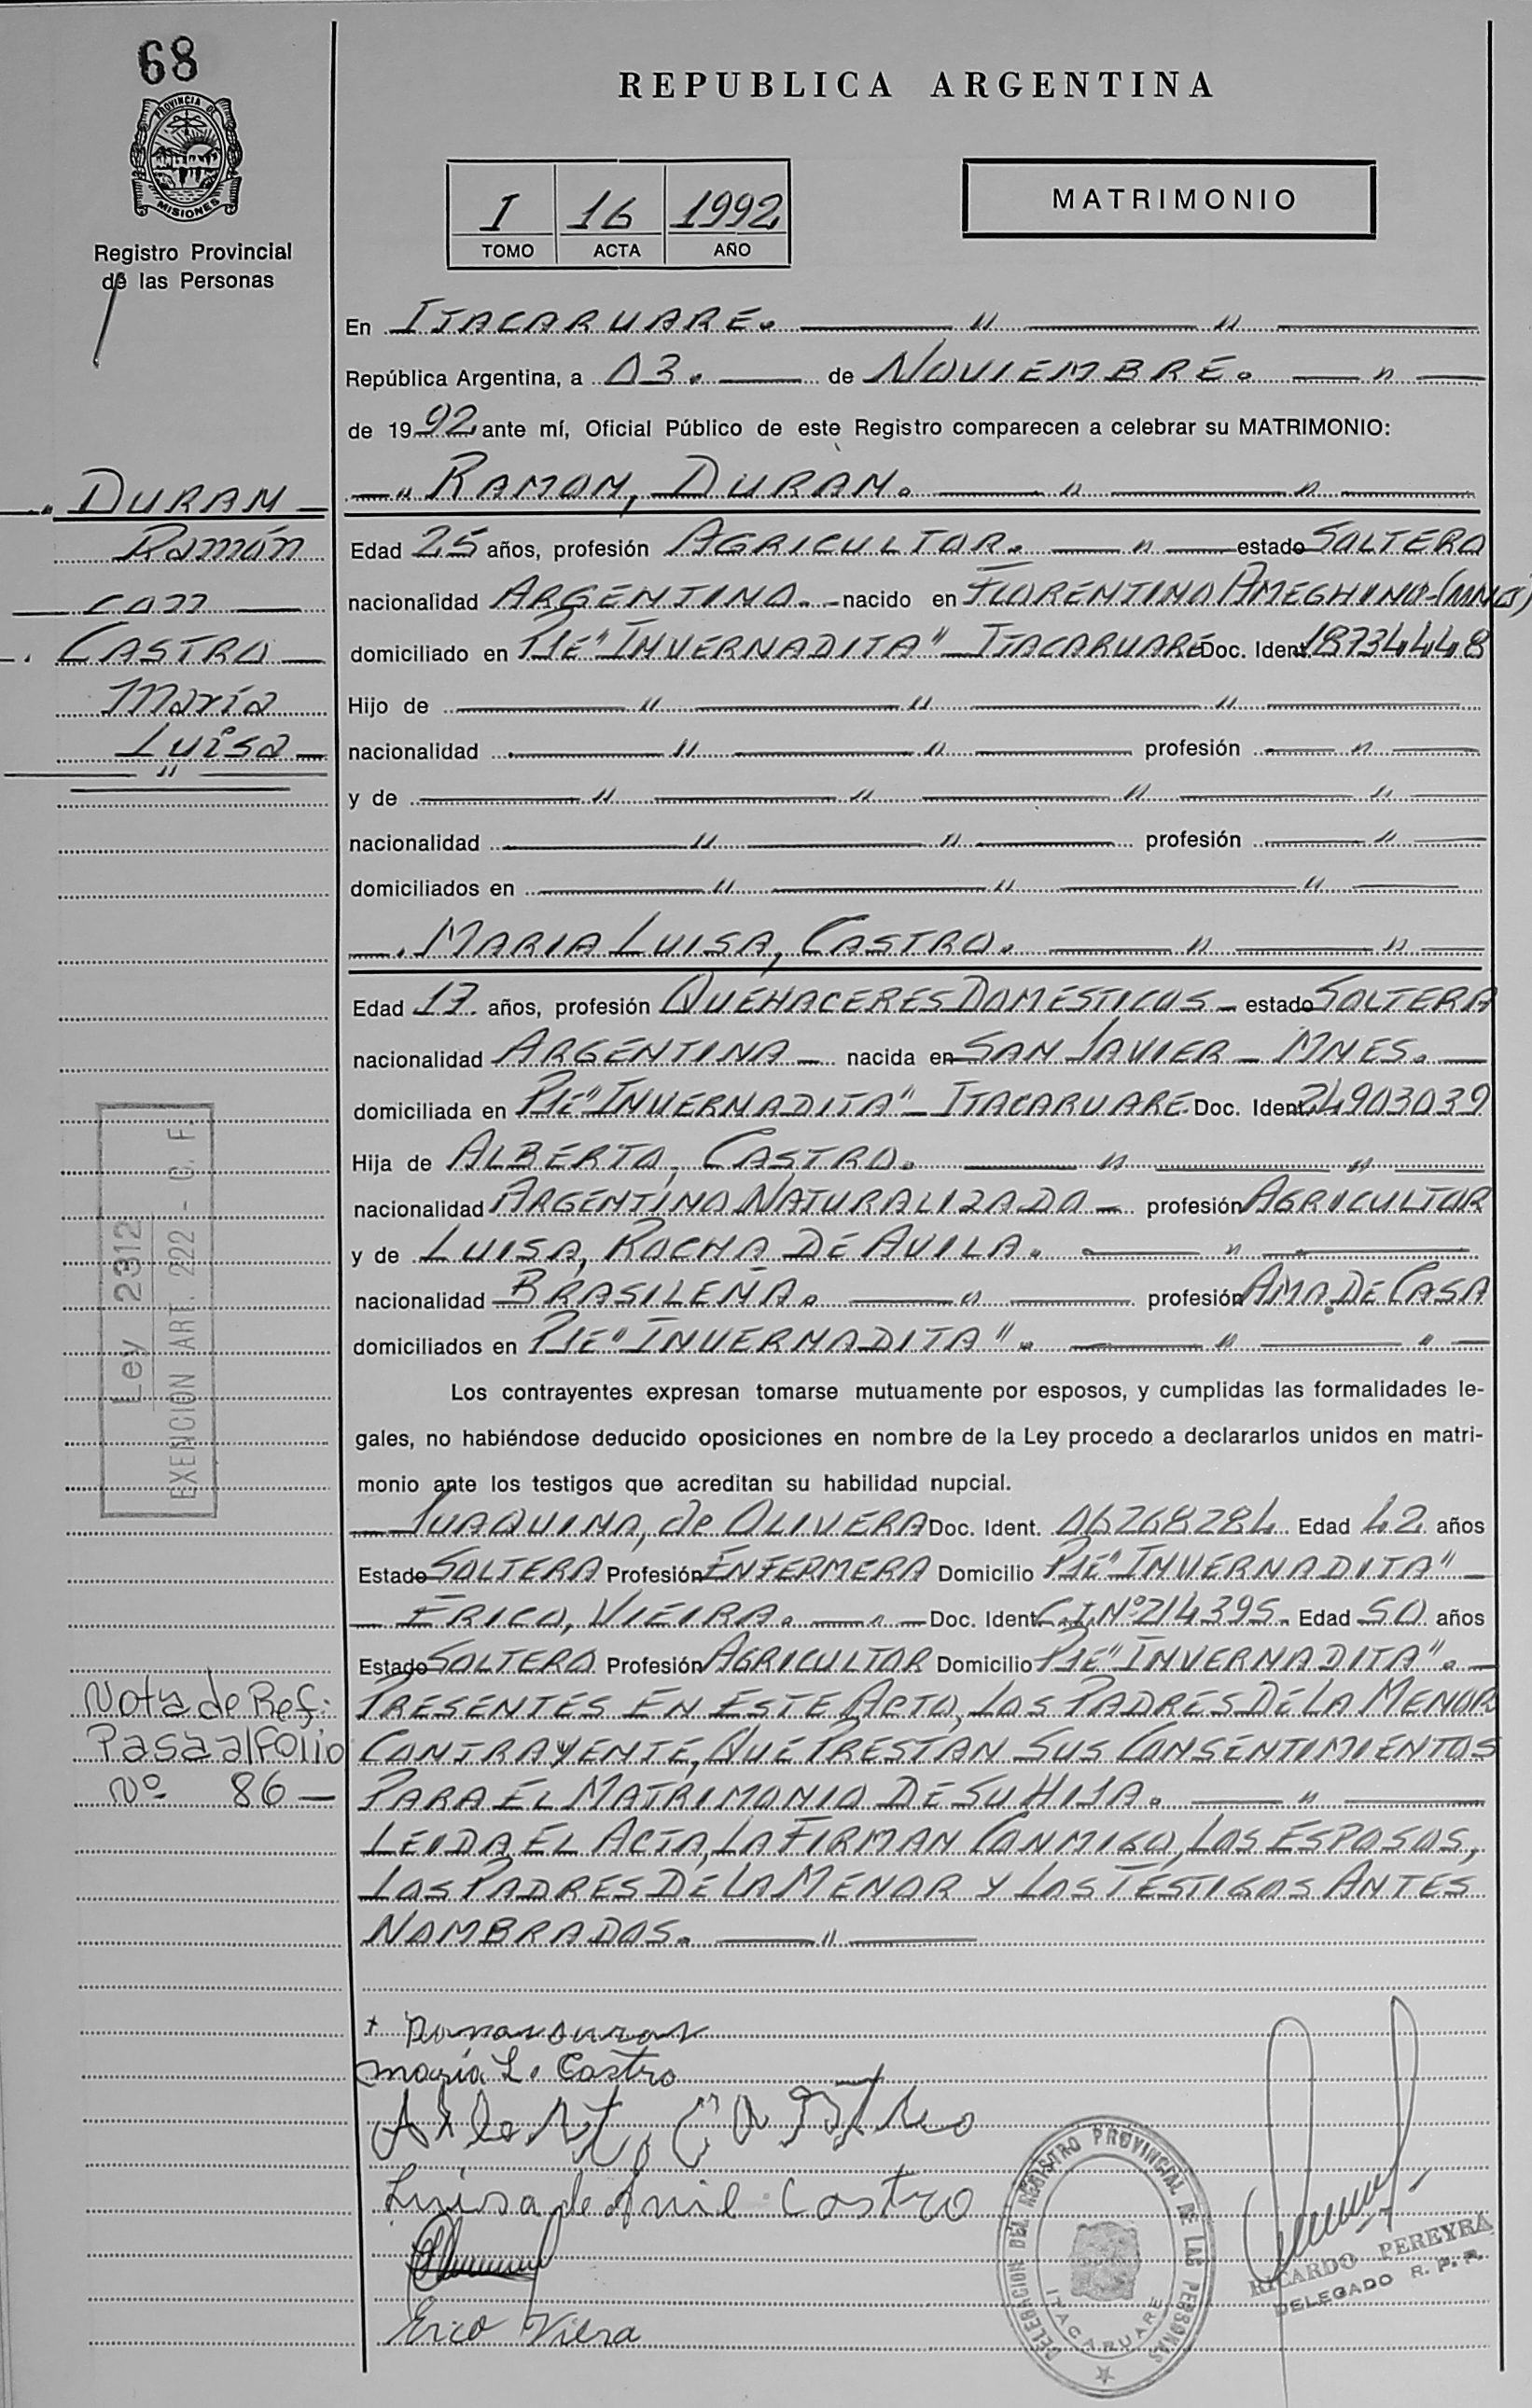 68
REPUBLICA ARGENTINA
PROVINCIA DE
MISIONES
Registro Provincial
de las Personas
I 16 1992
TOMO ACTA AÑO
MATRIMONIO
En ITACARUARE.
República Argentina, a 03. de NOVIEMBRE.
de 1992 ante mí, Oficial Público de este Registro comparecen a celebrar su MATRIMONIO:
RAMON, DURAN.
Edad 25 años, profesión AGRICULTOR. estado SOLTERO
nacionalidad ARGENTINO. nacido en FLORENTINO AMEGHINO-(MNES)
domiciliado en PJE "INVERNADITA" - ITACARUARE Doc. Ident. 18734448
Hijo de
nacionalidad profesión
y de
nacionalidad profesión
domiciliados en
MARIA LUISA, CASTRO.
Edad 17. años, profesión QUEHACERES DOMESTICOS - estado SOLTERA
nacionalidad ARGENTINA - nacida en SAN JAVIER - MNES.
domiciliada en PJE "INVERNADITA" - ITACARUARE. Doc. Ident. 24903039
Hija de ALBERTO, CASTRO.
nacionalidad ARGENTINO NATURALIZADO - profesión AGRICULTOR
y de LUISA, ROCHA DE AVILA.
nacionalidad BRASILEÑA. profesión AMA DE CASA
domiciliados en PJE "INVERNADITA".
Los contrayentes expresan tomarse mutuamente por esposos, y cumplidas las formalidades le-
gales, no habiéndose deducido oposiciones en nombre de la Ley procedo a declararlos unidos en matri-
monio ante los testigos que acreditan su habilidad nupcial.
JUAQUINA, de OLIVERA Doc. Ident. 06268284 Edad 42 años
Estado SOLTERA Profesión ENFERMERA Domicilio PJE "INVERNADITA"
ERICO, VIEIRA. Doc. Ident. C.I.Nº214395. Edad 50 años
Estado SOLTERO Profesión AGRICULTOR Domicilio PJE "INVERNADITA".
PRESENTES EN ESTE ACTO, LOS PADRES DE LA MENOR
CONTRAYENTE, QUE PRESTAN SUS CONSENTIMIENTOS
PARA EL MATRIMONIO DE SU HIJA.
LEIDA EL ACTA, LA FIRMAN CONMIGO, LOS ESPOSOS,
LOS PADRES DE LA MENOR Y LOS TESTIGOS ANTES
NOMBRADOS.
DURAN
Ramón
con
CASTRO
María
Luisa
Ley 2312
EXENCION ART. 222 - C. F.
Nota de Ref:
Pasa al Folio
Nº 86 -
maría L. Castro
Castro
Luisa de Castro
Erico Viera
DELEGACION DEL REGISTRO PROVINCIAL DE LAS PERSONAS
ITACARUARE
RICARDO PEREYRA
DELEGADO R. P. P.